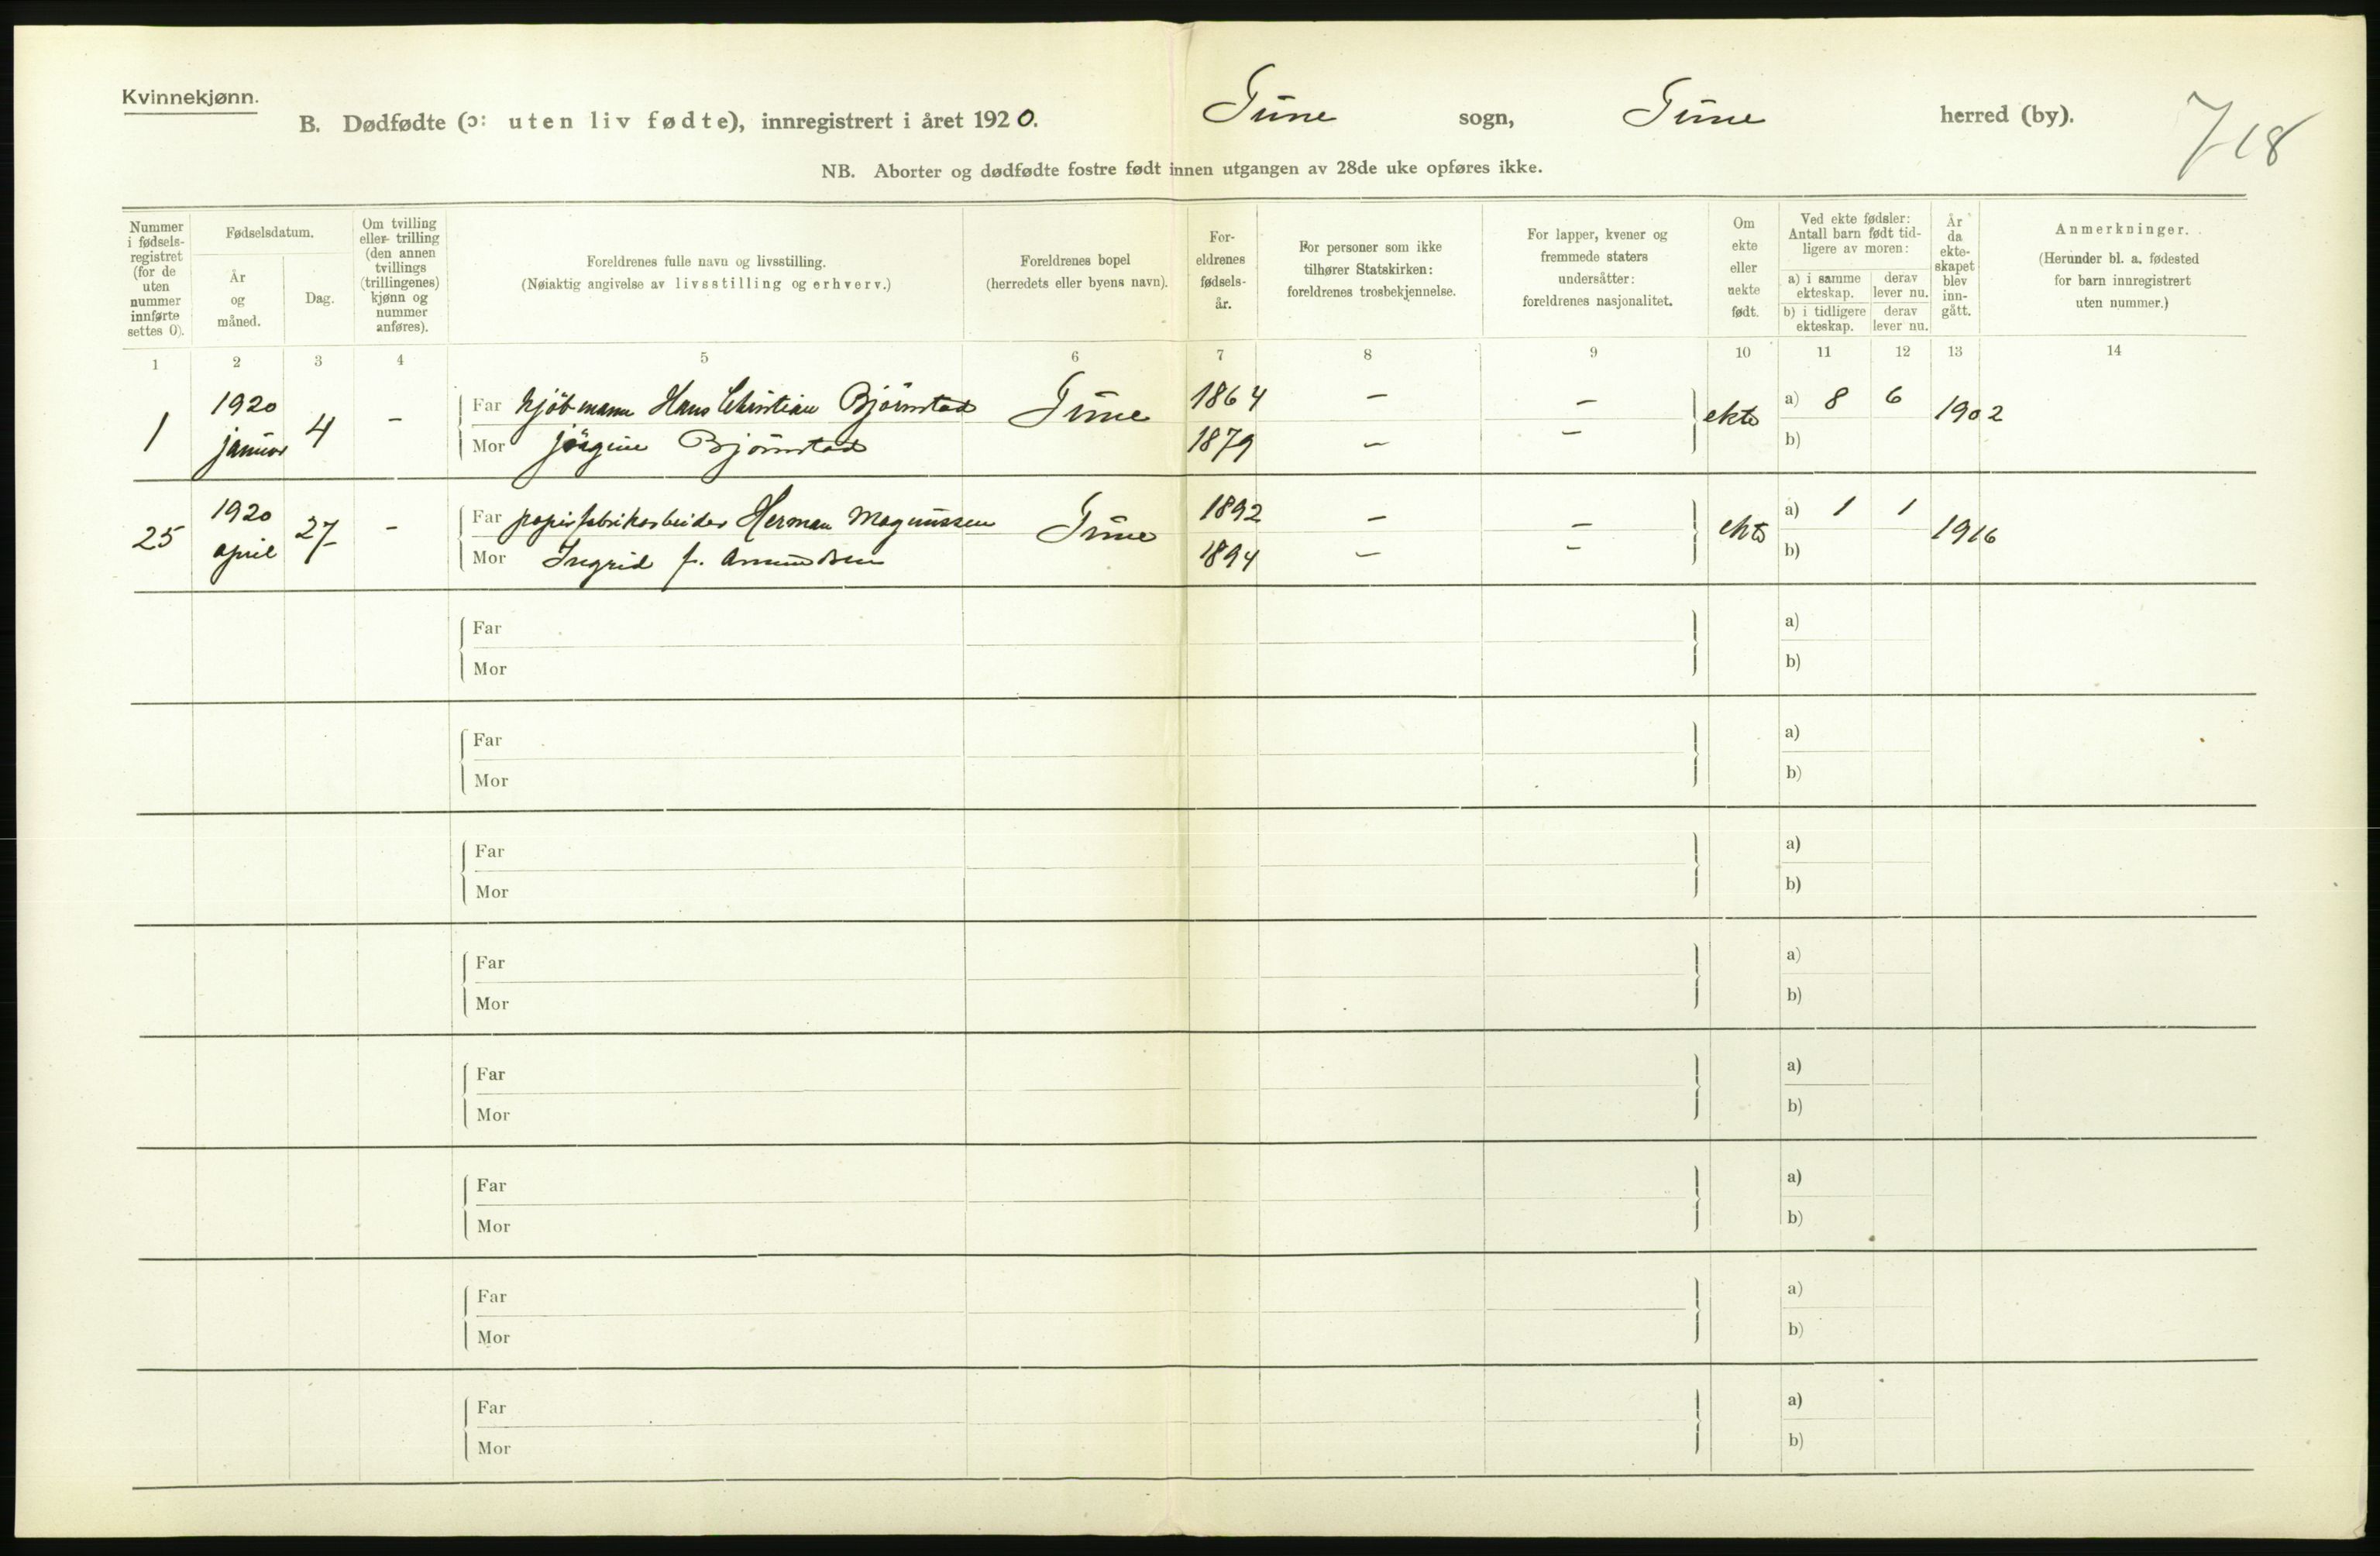 Kvinnekjønn.
B. Dødfødte (ɔ: uten liv fødte), innregistrert i året 1920. Tune sogn, Tune herred (by). 718
NB. Aborter og dødfødte fostre født innen utgangen av 28de uke opføres ikke.
Nummer i fødsels- registret (for de uten nummer innførte settes 0).
Fødselsdatum.
År og måned.
Dag.
Om tvilling eller trilling (den annen tvillings (trillingenes) kjønn og nummer anføres).
Foreldrenes fulle navn og livsstilling.
(Nøiaktig angivelse av livsstilling og erhverv.)
Foreldrenes bopel
(herredets eller byens navn).
For- eldrenes fødsels- år.
For personer som ikke tilhører Statskirken: foreldrenes trosbekjennelse.
For lapper, kvener og fremmede staters undersåtter: foreldrenes nasjonalitet.
Om ekte eller uekte født.
Ved ekte fødsler: Antall barn født tid- ligere av moren:
a) i samme ekteskap.
derav lever nu.
b) i tidligere ekteskap.
derav lever nu.
År da ekte- skapet blev inn- gått.
Anmerkninger.
(Herunder bl. a. fødested for barn innregistrert uten nummer.)
1 2 3 4 5 6 7 8 9 10 11 12 13 14
1 1920 januar 4 –
Far kjøbmann Hans Christian Bjørnstad Tune 1864 – – ekte a) 8 6 1902
Mor Jørgine Bjørnstad 1879 – – b)
25 1920 april 27 –
Far papirfabrikarbeider Herman Magnussen Tune 1892 – – ekte a) 1 1 1916
Mor Ingrid f. Amundsen 1894 – – b)
Far a)
Mor b)
Far a)
Mor b)
Far a)
Mor b)
Far a)
Mor b)
Far a)
Mor b)
Far a)
Mor b)
Far a)
Mor b)
Far a)
Mor b)